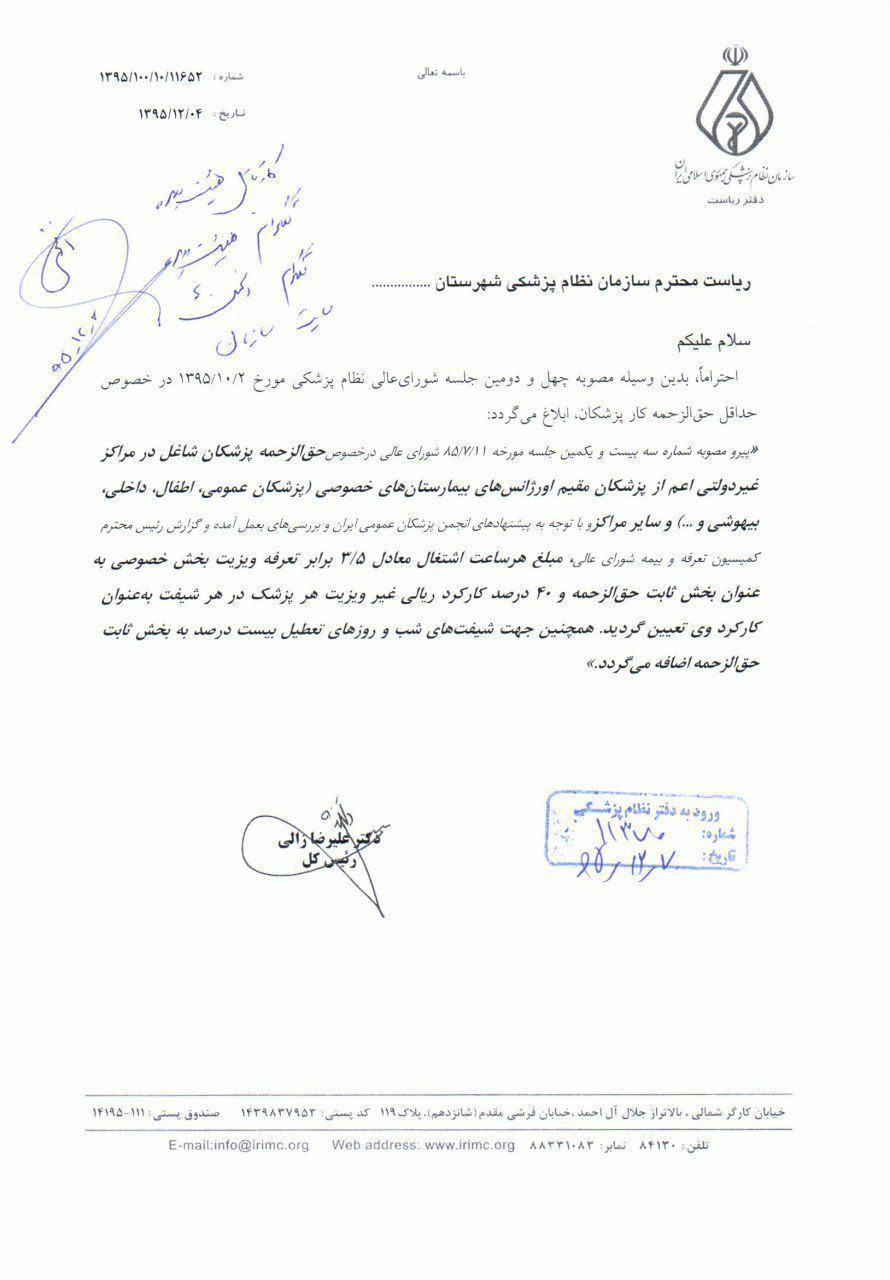 باسمه تعالی
شماره: ۱۳۹۵/۱۰۰/۱۰/۱۱۶۵۲
تاریخ: ۱۳۹۵/۱۲/۰۴
سازمان نظام پزشکی جمهوری اسلامی ایران
دفتر ریاست
کانال هیئت مدیره
تلگرام هیئت مدیره
تلگرام
سایت سازمان
۹۵-۱۲-
ریاست محترم سازمان نظام پزشکی شهرستان ................
سلام علیکم
احتراماً، بدین وسیله مصوبه چهل و دومین جلسه شورای‌عالی نظام پزشکی مورخ ۱۳۹۵/۱۰/۲ در خصوص
حداقل حق‌الزحمه کار پزشکان، ابلاغ می‌گردد:
«پیرو مصوبه شماره سه بیست و یکمین جلسه مورخه ۸۵/۷/۱۱ شورای عالی درخصوص حق‌الزحمه پزشکان شاغل در مراکز
غیردولتی اعم از پزشکان مقیم اورژانس‌های بیمارستان‌های خصوصی (پزشکان عمومی، اطفال، داخلی،
بیهوشی و ...) و سایر مراکز و با توجه به پیشنهادهای انجمن پزشکان عمومی ایران و بررسی‌های بعمل آمده و گزارش رئیس محترم
کمیسیون تعرفه و بیمه شورای عالی، مبلغ هرساعت اشتغال معادل ۳/۵ برابر تعرفه ویزیت بخش خصوصی به
عنوان بخش ثابت حق‌الزحمه و ۴۰ درصد کارکرد ریالی غیر ویزیت هر پزشک در هر شیفت به‌عنوان
کارکرد وی تعیین گردید. همچنین جهت شیفت‌های شب و روزهای تعطیل بیست درصد به بخش ثابت
حق‌الزحمه اضافه می‌گردد.»
دکتر علیرضا زالی
رئیس کل
ورود به دفتر نظام پزشکی
شماره:
تاریخ: ۹۵/۱۲/۷
خیابان کارگر شمالی ، بالاتراز جلال آل احمد ،خیابان فرشی مقدم (شانزدهم)، پلاک ۱۱۹ کد پستی: ۱۴۳۹۸۳۷۹۵۳ صندوق پستی: ۱۱۱-۱۴۱۹۵
تلفن: ۸۴۱۳۰ نمابر: ۸۸۳۳۱۰۸۳ Web address: www.irimc.org E-mail:info@irimc.org